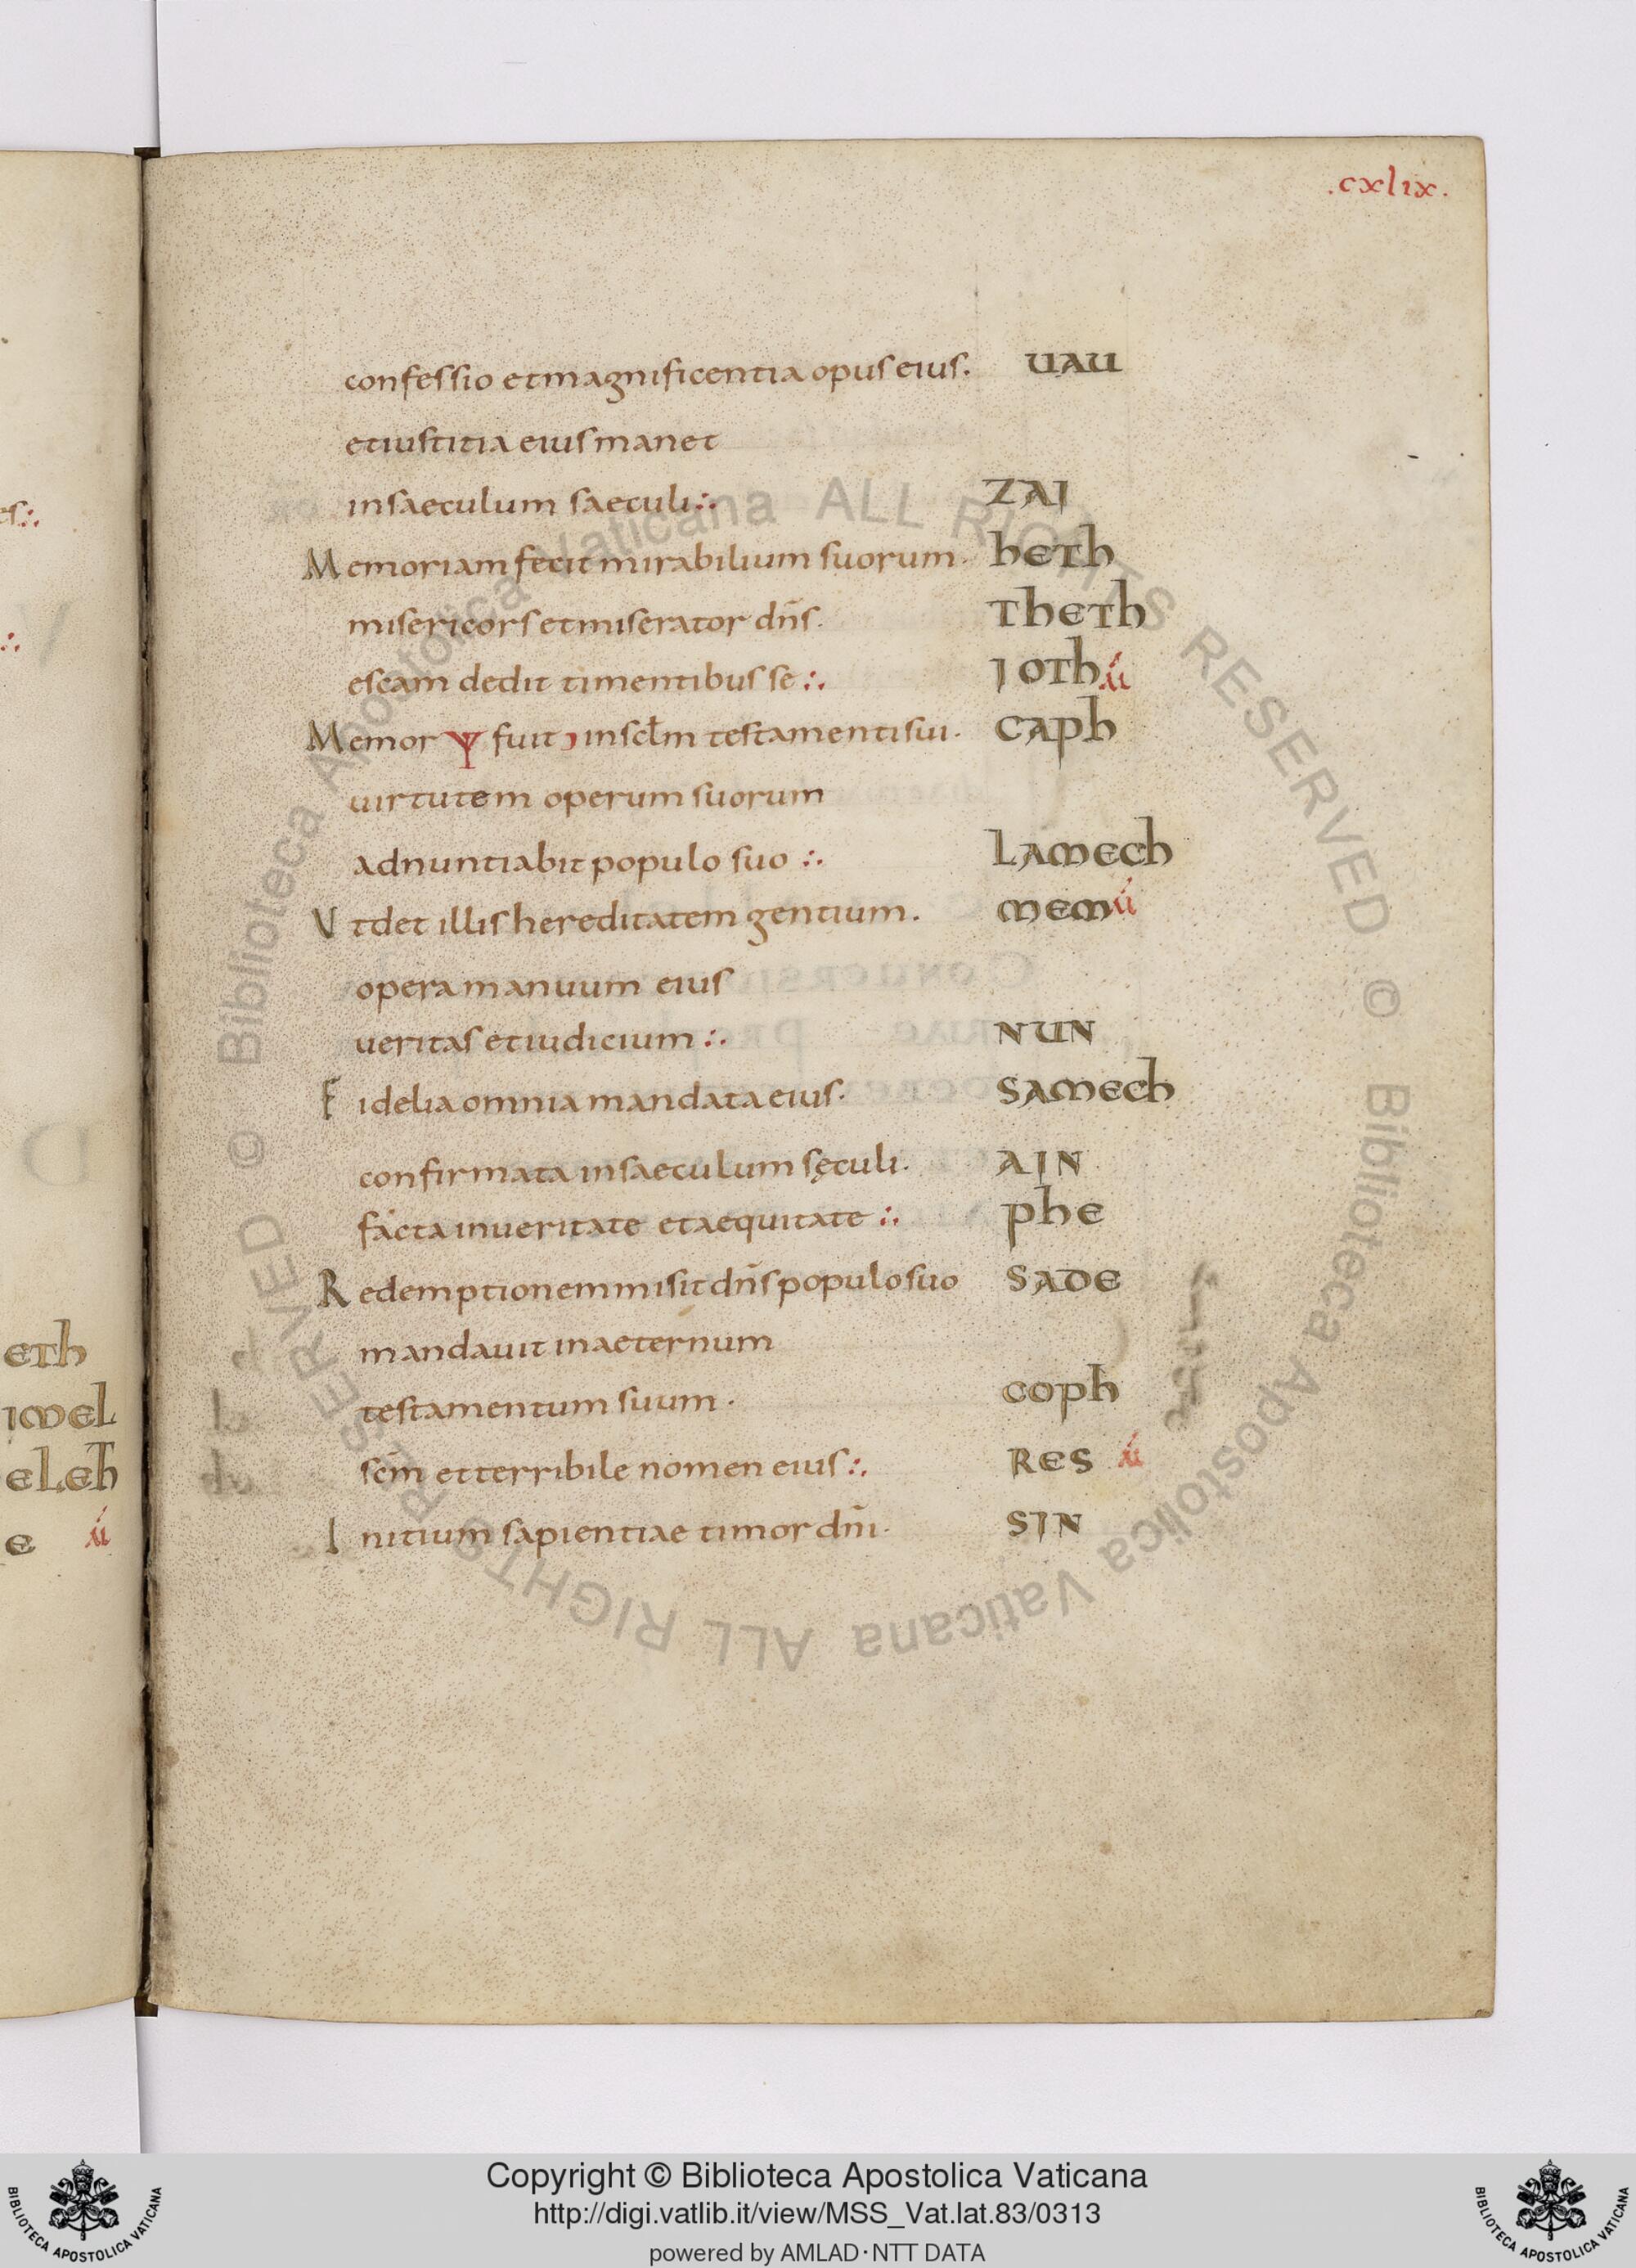 .cxlix.
confessio et magnificentia opus eius. UAU
et iustitia eius manet
in saeculum saeculi ∴ ZAI
Memoriam fecit mirabilium suorum. heth
misericors et miserator dn̄s. Theth
escam dedit timentibus se ∴ Ioth ú
Memor Ψ fuit in sclm testamenti sui. Caph
uirtutem operum suorum
adnuntiabit populo suo ∴ Lamech
Vt det illis hereditatem gentium. mem ú
opera manuum eius
ueritas et iudicium ∴ NUN
Fidelia omnia mandata eius. samech
confirmata in saeculum sęculi. AIN
facta in ueritate et aequitate ∴ phe
Redemptionem misit dn̄s populo suo sade
mandauit in aeternum
testamentum suum. coph
scm̄ et terribile nomen eius ∴ RES ú
Initium sapientiae timor dn̄i. SIN
es ∴
∴
eth
imel
eleth
e ú
© Biblioteca Apostolica Vaticana ALL RIGHTS RESERVED © Biblioteca Apostolica Vaticana ALL RIGHTS RESERVED
Copyright © Biblioteca Apostolica Vaticana
http://digi.vatlib.it/view/MSS_Vat.lat.83/0313
powered by AMLAD·NTT DATA
BIBLIOTECA APOSTOLICA VATICANA
BIBLIOTECA APOSTOLICA VATICANA